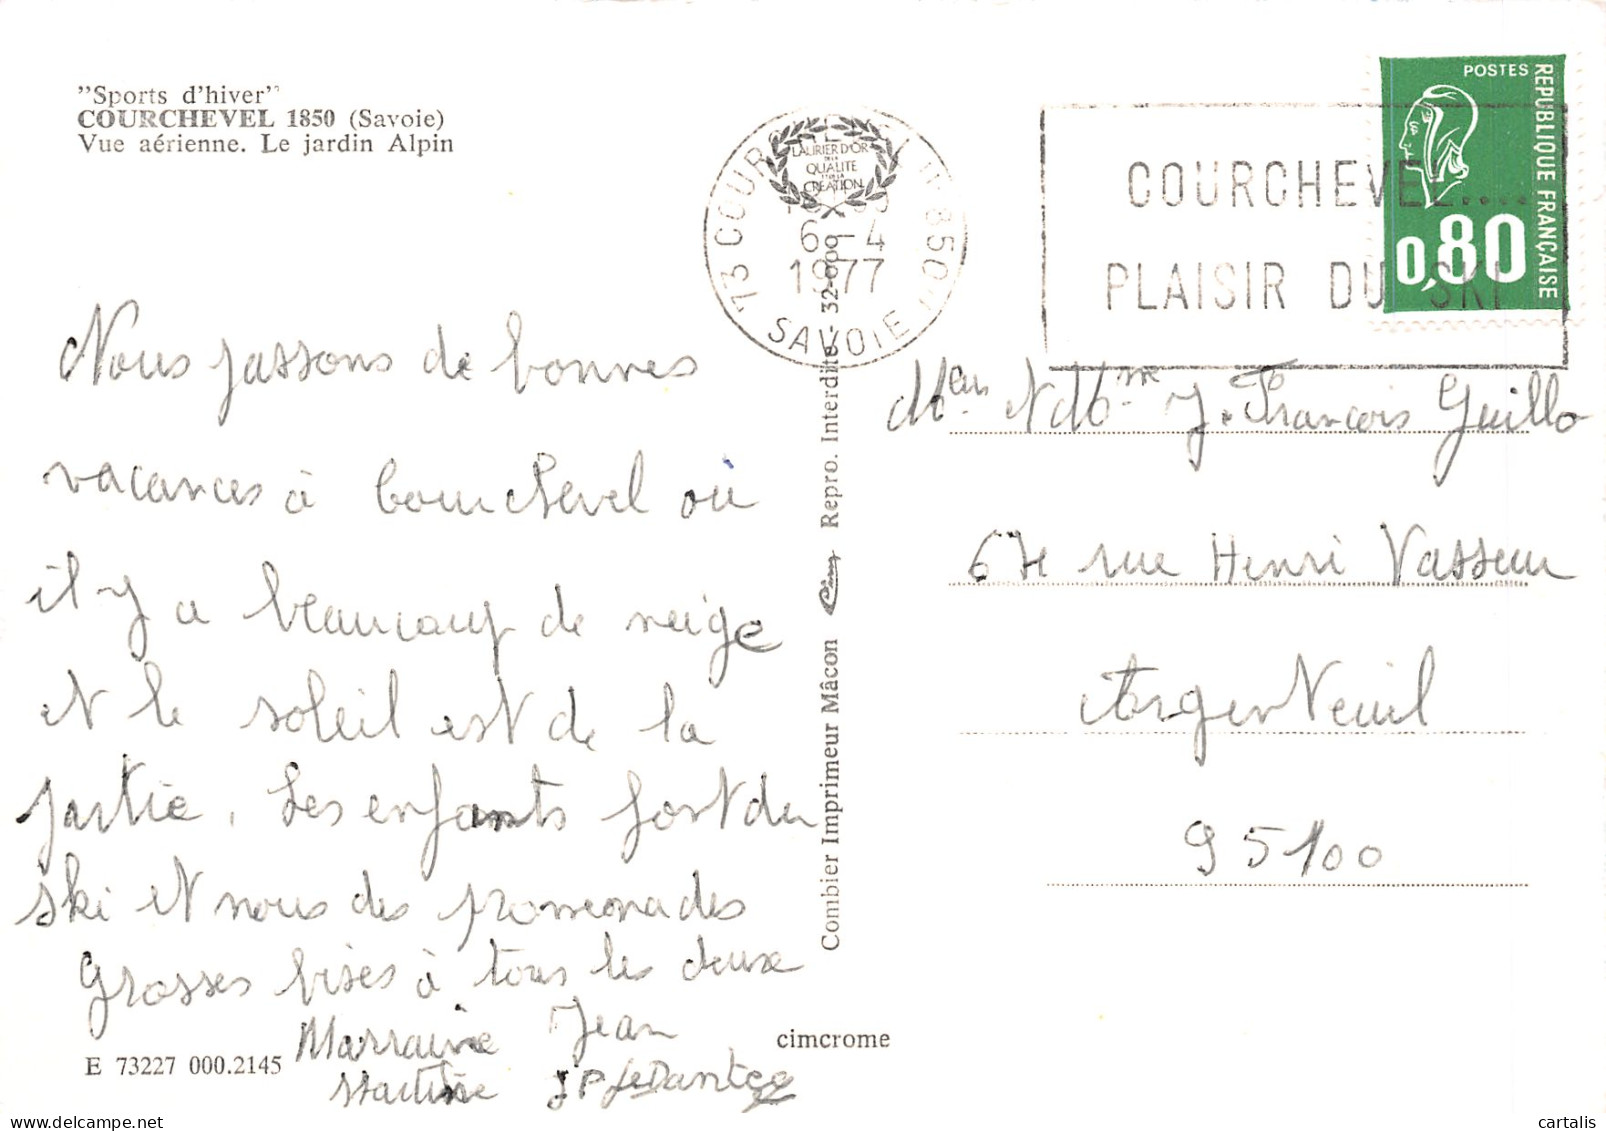 "Sports d'hiver"
COURCHEVEL 1850 (Savoie)
Vue aérienne. Le jardin Alpin
Nous passons de bonnes
vacances à Courchevel où
il y a beaucoup de neige
et le soleil est de la
partie. Les enfants font du
ski et nous des promenades
Grosses bises à tous les deux
Marraine Jean
Martine JP Le Dantec
E 73227 000.2145
cimcrome
Combier Imprimeur Mâcon Cim Repro. Interdite - 32-009
LAURIER D'OR
DE LA
QUALITE
ET DE LA
CREATION
73 COURCHEVEL 1850
6-4
1977
SAVOIE
COURCHEVEL....
PLAISIR DU SKI
POSTES
REPUBLIQUE FRANÇAISE
0,80
Mr et Mme J. François Guillo
67 rue Henri Vasseur
Argenteuil
95100
© cartalis
www.delcampe.net